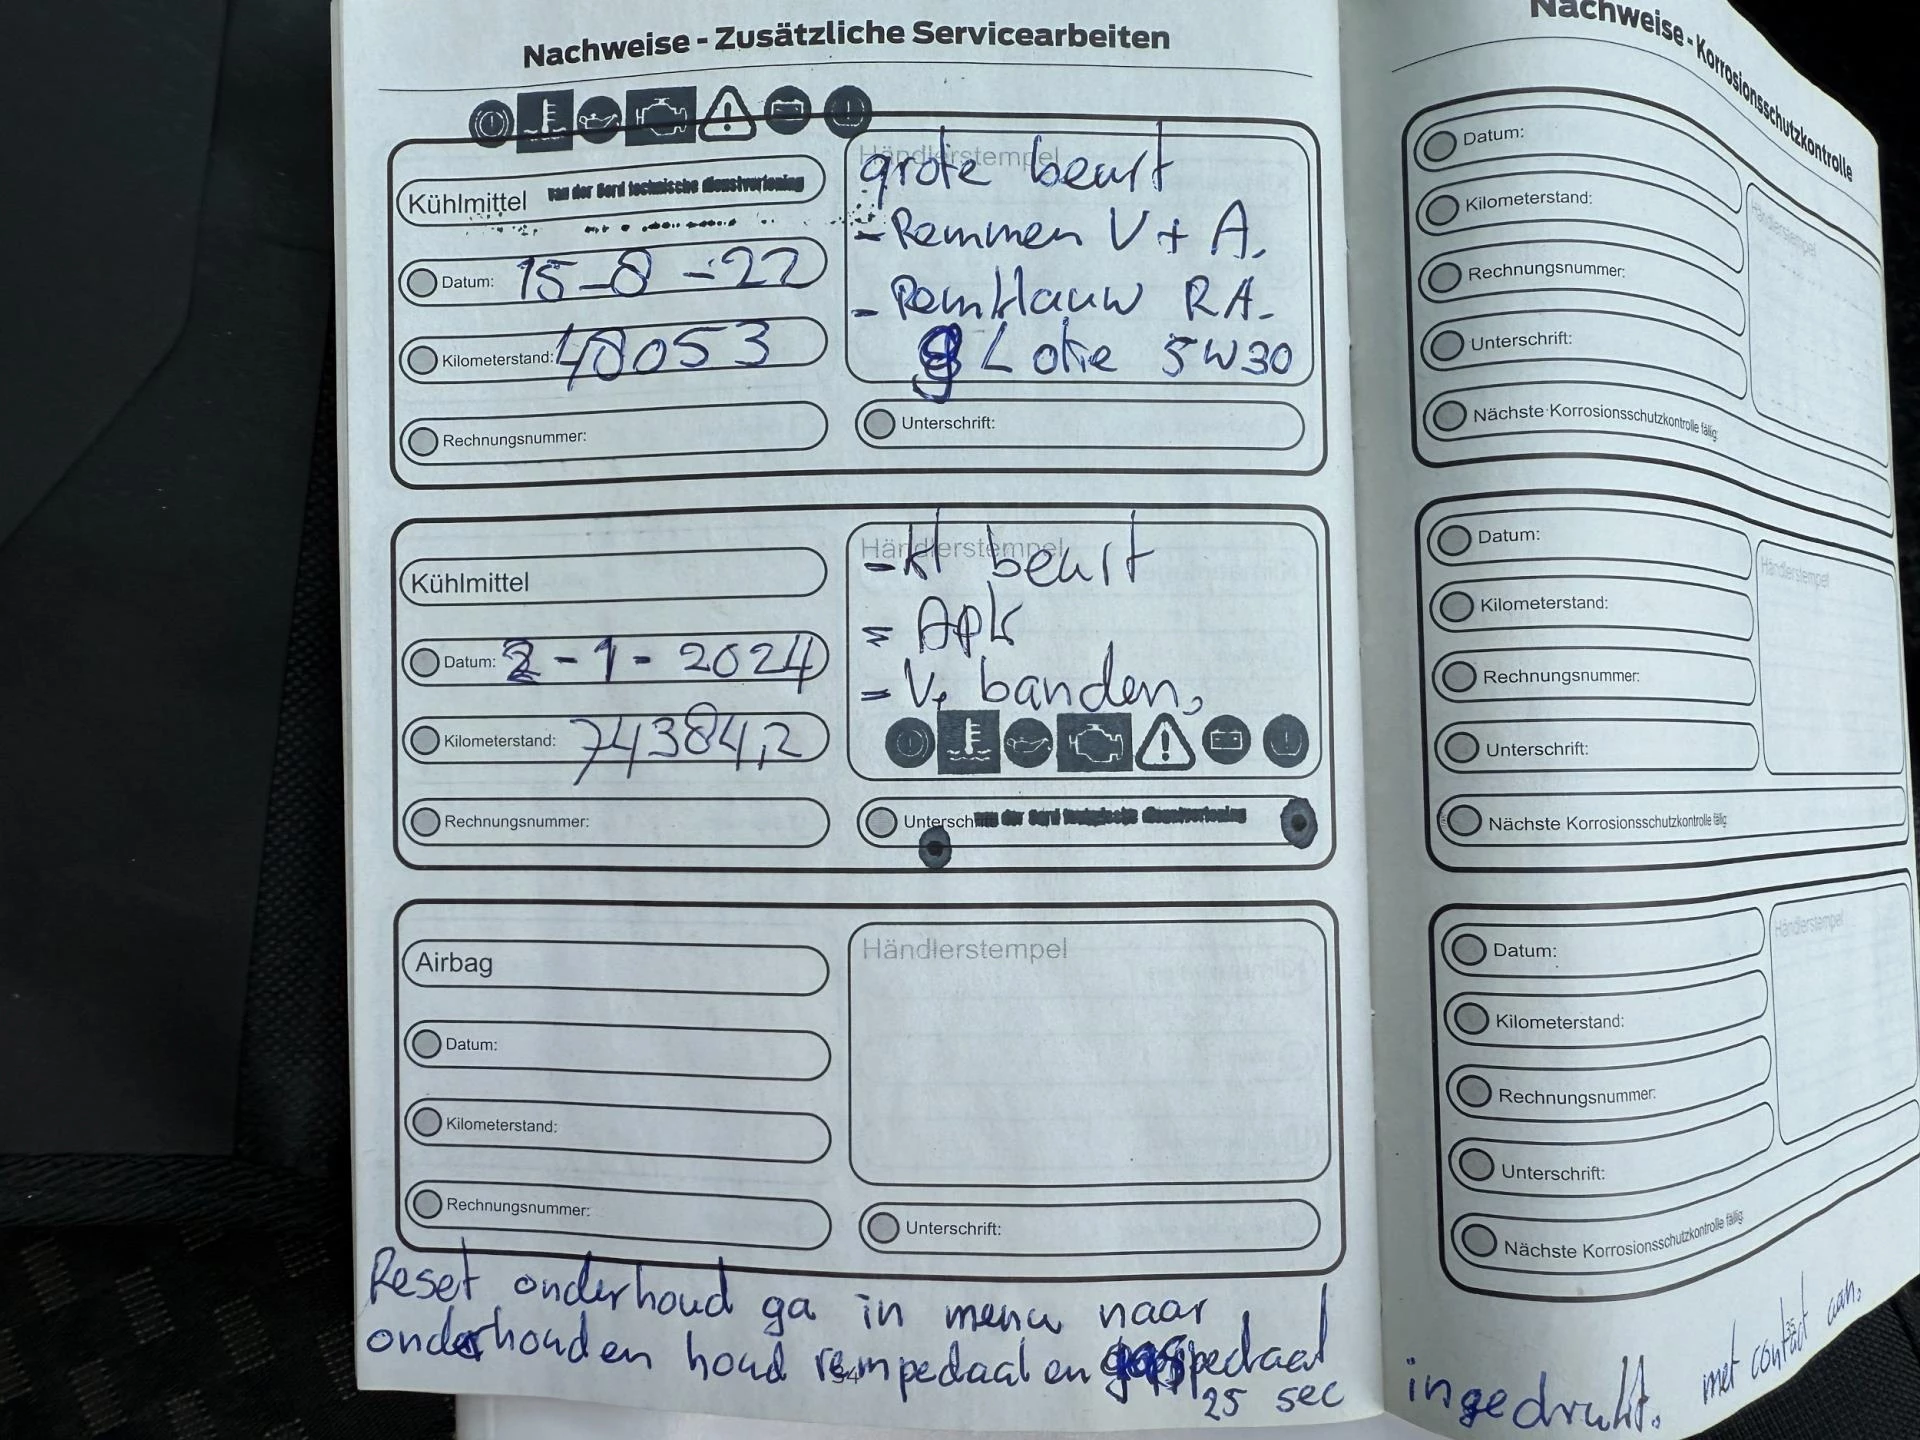 Nachweise - Zusätzliche Servicearbeiten
Kühlmittel
van der technische dienstverlening
Datum: 15-8-22
Kilometerstand: 48053
Rechnungsnummer:
Händlerstempel
grote beurt
- Remmen V + A.
- Remklauw RA.
L olie 5W30
Unterschrift:
Kühlmittel
Datum: 2-1-2024
Kilometerstand: 74384,2
Rechnungsnummer:
Händlerstempel
- kl beurt
= Apk
= V, banden,
Unterschrift:
Airbag
Datum:
Kilometerstand:
Rechnungsnummer:
Händlerstempel
Unterschrift:
Reset onderhoud ga in menu naar
onderhouden houd rempedaal en gaspedaal
25 sec
34
Nachweise - Korrosionsschutzkontrolle
Datum:
Kilometerstand:
Rechnungsnummer:
Unterschrift:
Nächste Korrosionsschutzkontrolle fällig:
Händlerstempel
Datum:
Kilometerstand:
Rechnungsnummer:
Unterschrift:
Nächste Korrosionsschutzkontrolle fällig:
Händlerstempel
Datum:
Kilometerstand:
Rechnungsnummer:
Unterschrift:
Nächste Korrosionsschutzkontrolle fällig:
Händlerstempel
ingedrukt. met contact aan.
35